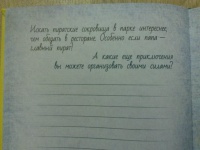 Искать пиратские сокровища в парке интереснее,
чем обедать в ресторане. Особенно если папа —
главный пират!
А какие еще приключения
вы можете организовать своими силами?